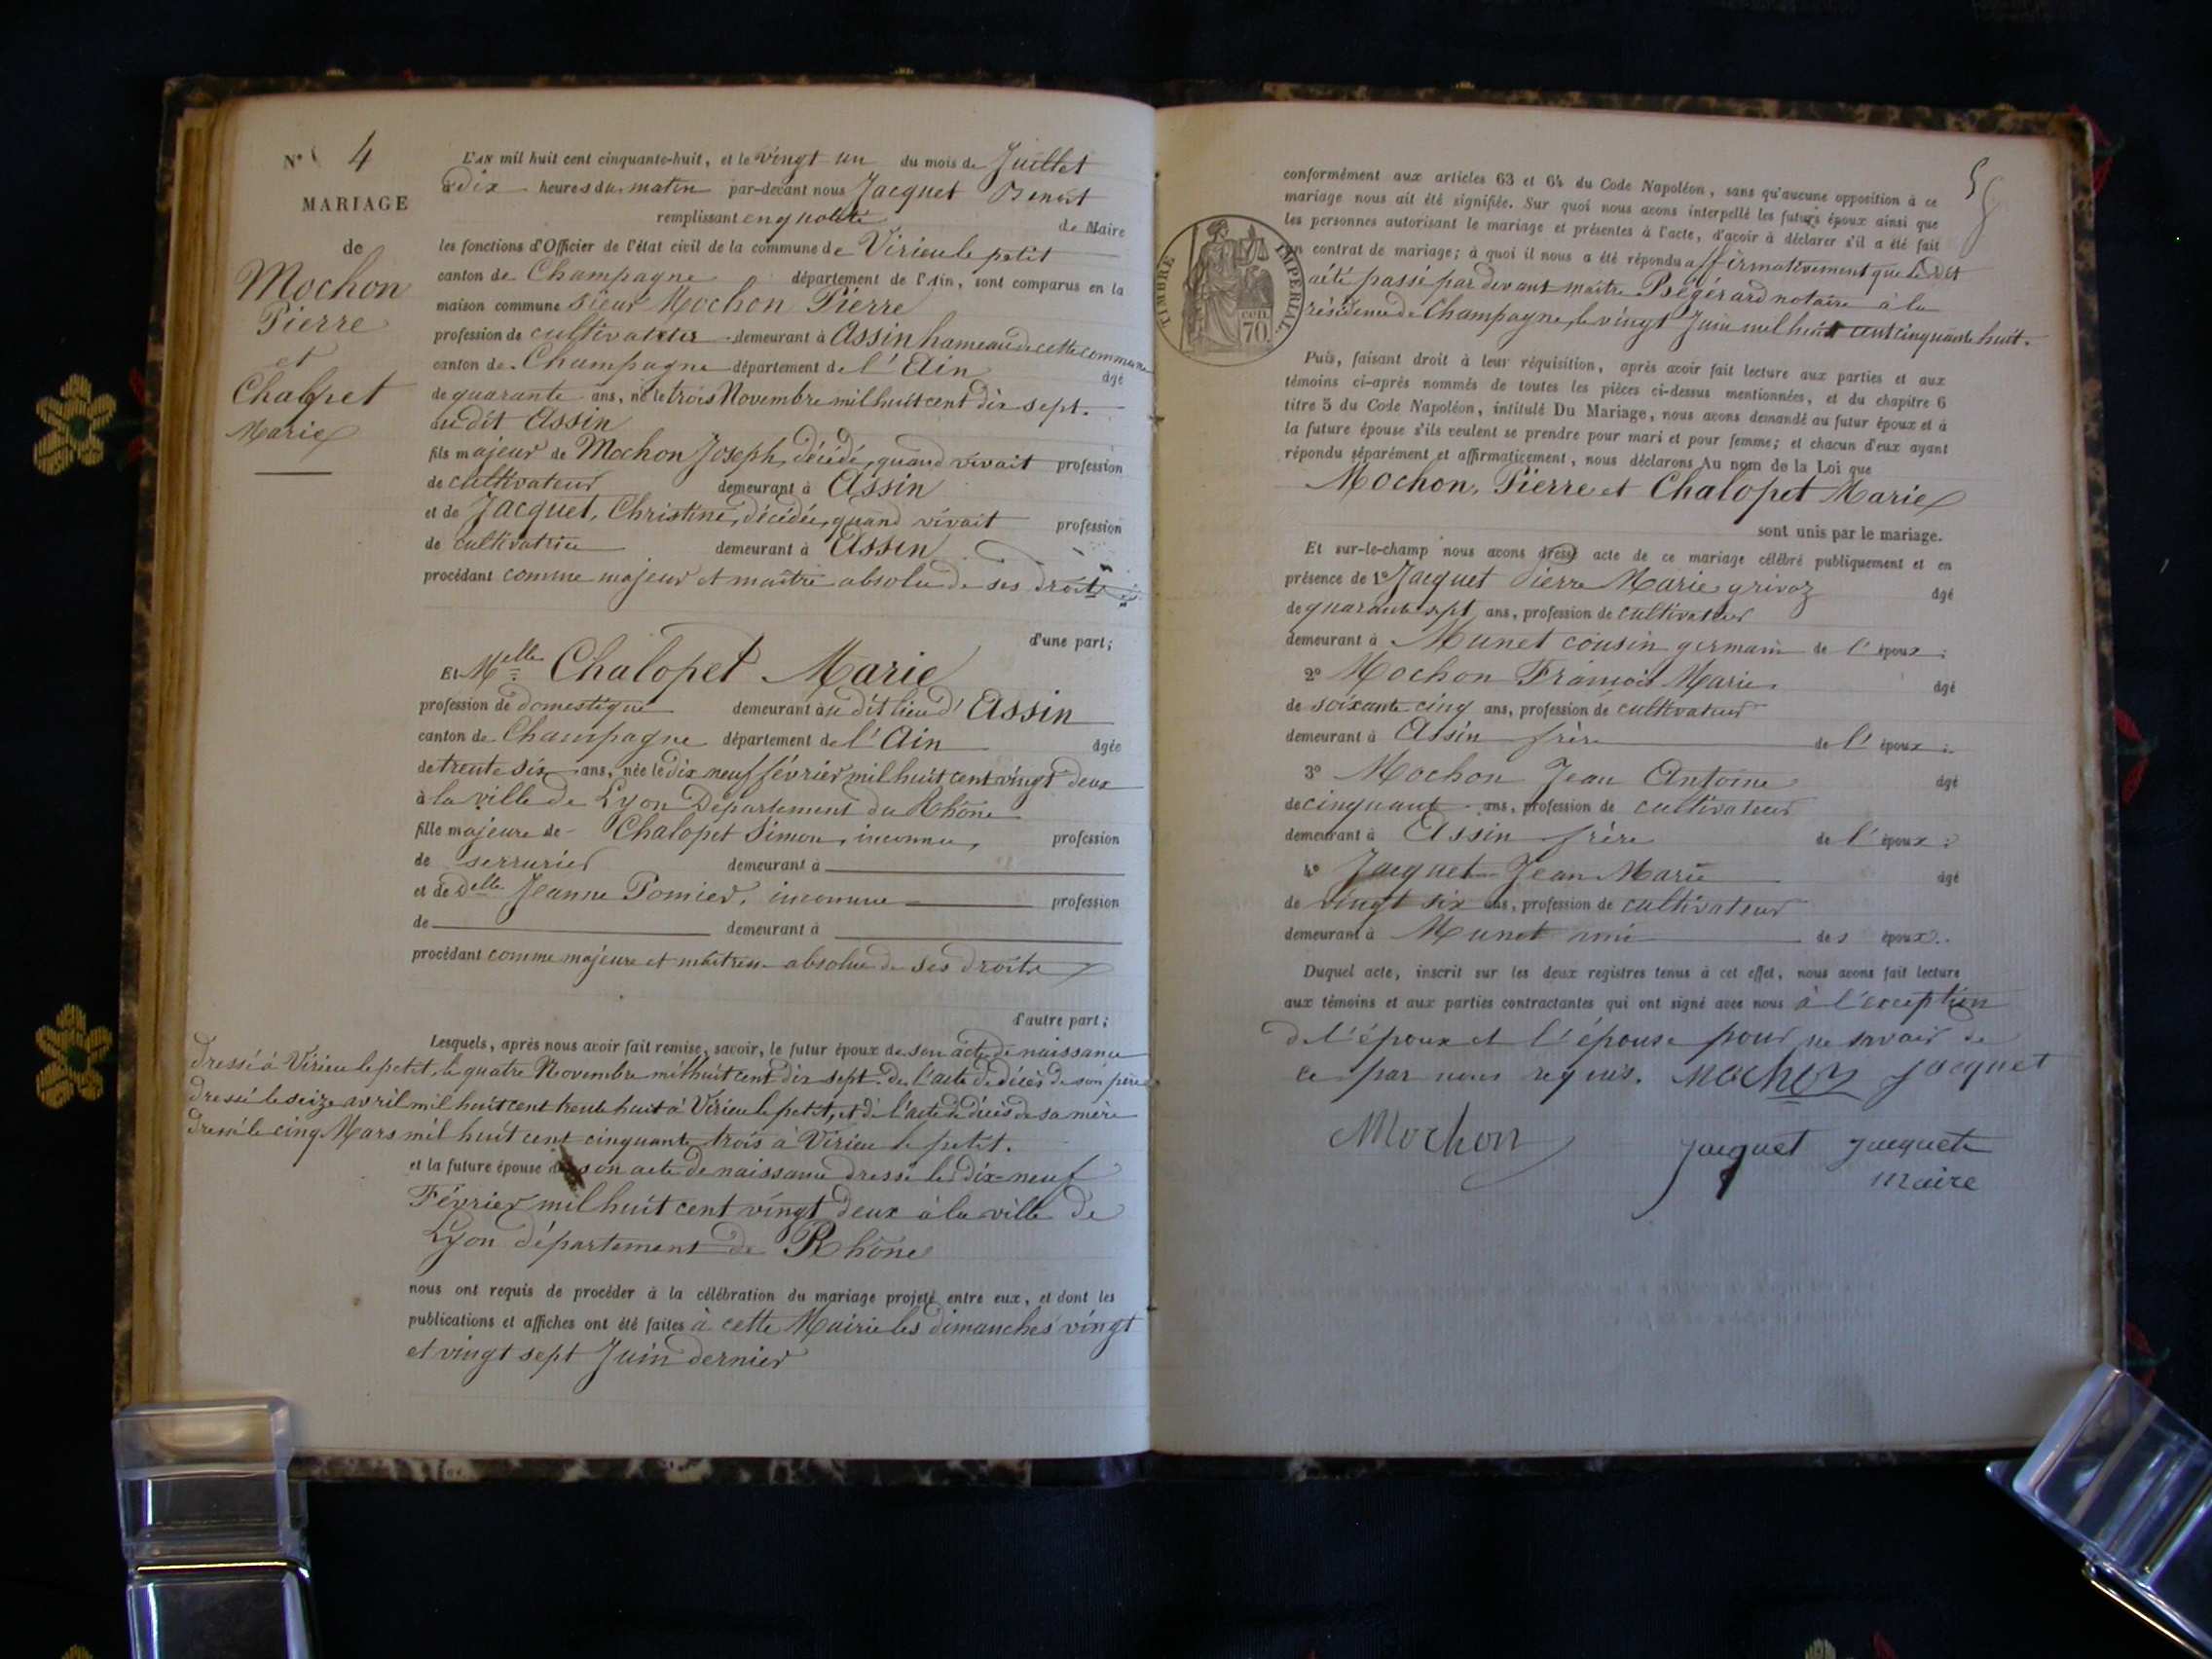 N° 4
MARIAGE
de
Mochon
Pierre
et
Chalopet
Marie
L'AN mil huit cent cinquante-huit, et le vingt un du mois de Juillet
à dix heures du matin par-devant nous Jacquet Benoit
remplissant en qualité de Maire
les fonctions d'Officier de l'état civil de la commune de Virieu le petit
canton de Champagne département de l'Ain, sont comparus en la
maison commune sieur Mochon Pierre
profession de cultivateur demeurant à Assin hameau de cette commune
canton de Champagne département de l'Ain âgé
de quarante ans, né le trois Novembre mil huit cent dix sept
au dit Assin
fils majeur de Mochon Joseph, décédé, quand vivait profession
de cultivateur demeurant à Assin
et de Jacquet, Christine, décédée, quand vivait profession
de cultivatrice demeurant à Assin
procédant comme majeur et maître absolu de ses droits
d'une part;
Et Melle Chalopet Marie
profession de domestique demeurant à u dit lieu d'Assin
canton de Champagne département de l'Ain âgée
de trente six ans, née le dix neuf février mil huit cent vingt deux
à la ville de Lyon Département du Rhône
fille majeure de Chalopet Simon, inconnu, profession
de serrurier demeurant à
et de delle Jeanne Pomier, inconnue profession
de demeurant à
procédant comme majeure et maîtresse absolue de ses droits
d'autre part;
Lesquels, après nous avoir fait remise, savoir, le futur époux de son acte de naissance
dressé à Virieu le petit, le quatre Novembre mil huit cent dix sept. De l'acte de décès de son père
dressé le seize avril mil huit cent trente huit à Virieu le petit, et de l'acte de décès de sa mère
dressé le cinq Mars mil huit cent cinquante trois à Virieu le petit.
et la future épouse de son acte de naissance dressé le dix-neuf
Février mil huit cent vingt deux à la ville de
Lyon département de Rhône
nous ont requis de procéder à la célébration du mariage projeté entre eux, et dont les
publications et affiches ont été faites à cette Mairie les dimanches vingt
et vingt sept Juin dernier
conformément aux articles 63 et 64 du Code Napoléon, sans qu'aucune opposition à ce
mariage nous ait été signifiée. Sur quoi nous avons interpellé les futurs époux ainsi que
les personnes autorisant le mariage et présentes à l'acte, d'avoir à déclarer s'il a été fait
un contrat de mariage; à quoi il nous a été répondu affirmativement que le dit
a été passé par devant maître Bégérard notaire à la
résidence de Champagne, le vingt Juin mil huit cent cinquante huit.
TIMBRE IMPÉRIAL
CEN. 70.
Puis, faisant droit à leur réquisition, après avoir fait lecture aux parties et aux
témoins ci-après nommés de toutes les pièces ci-dessus mentionnées, et du chapitre 6
titre 5 du Code Napoléon, intitulé Du Mariage, nous avons demandé au futur époux et à
la future épouse s'ils veulent se prendre pour mari et pour femme; et chacun d'eux ayant
répondu séparément et affirmativement, nous déclarons Au nom de la Loi que
Mochon, Pierre et Chalopet Marie
sont unis par le mariage.
Et sur-le-champ nous avons dressé acte de ce mariage célébré publiquement et en
présence de 1° Jacquet Pierre Marie grivoz âgé
de quarante sept ans, profession de cultivateur
demeurant à Munet cousin germain de l'époux;
2° Mochon François Marie âgé
de soixante cinq ans, profession de cultivateur
demeurant à Assin frère de l'époux;
3° Mochon Jean Antoine âgé
de cinquante ans, profession de cultivateur
demeurant à Assin frère de l'époux;
4° Jacquet Jean Marie âgé
de vingt six ans, profession de cultivateur
demeurant à Munet ami des époux.
Duquel acte, inscrit sur les deux registres tenus à cet effet, nous avons fait lecture
aux témoins et aux parties contractantes qui ont signé avec nous à l'exception
de l'époux et l'épouse pour ne savoir de
ce par nous requis. Mochon Jacquet
Mochon Jacquet Jacquet
Maire